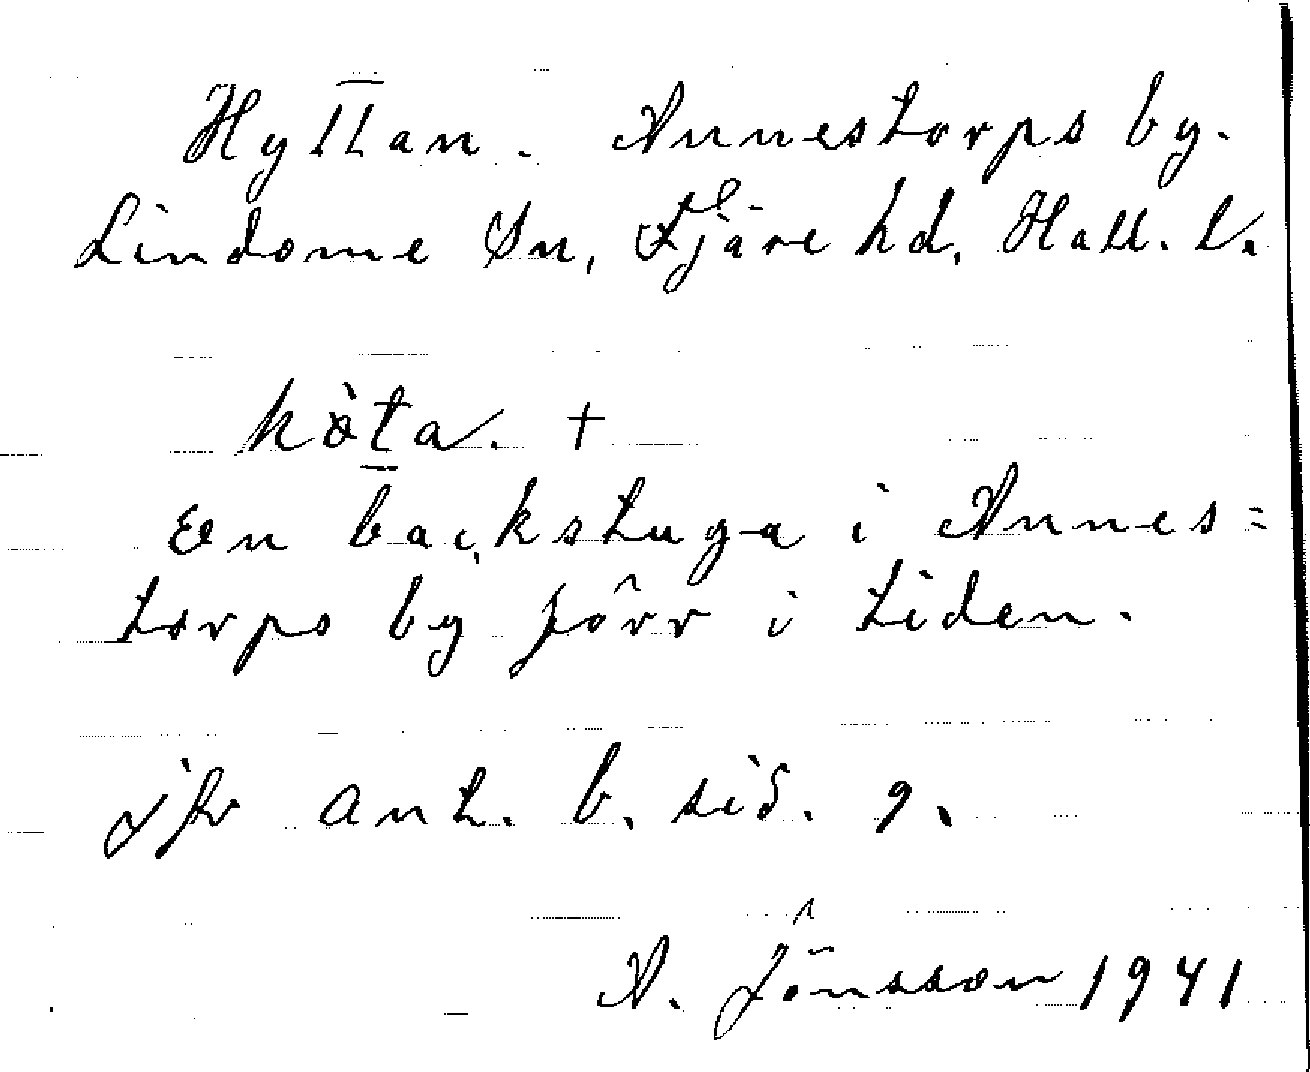 Hyttan. Annestorps by.
Lindome Sn, Fjäre hd. Hall. l.
hòta. +
En backstuga i Annes=
torps by förr i tiden.
jfr ant. b. sid. 9.
A. Jönsson 1941